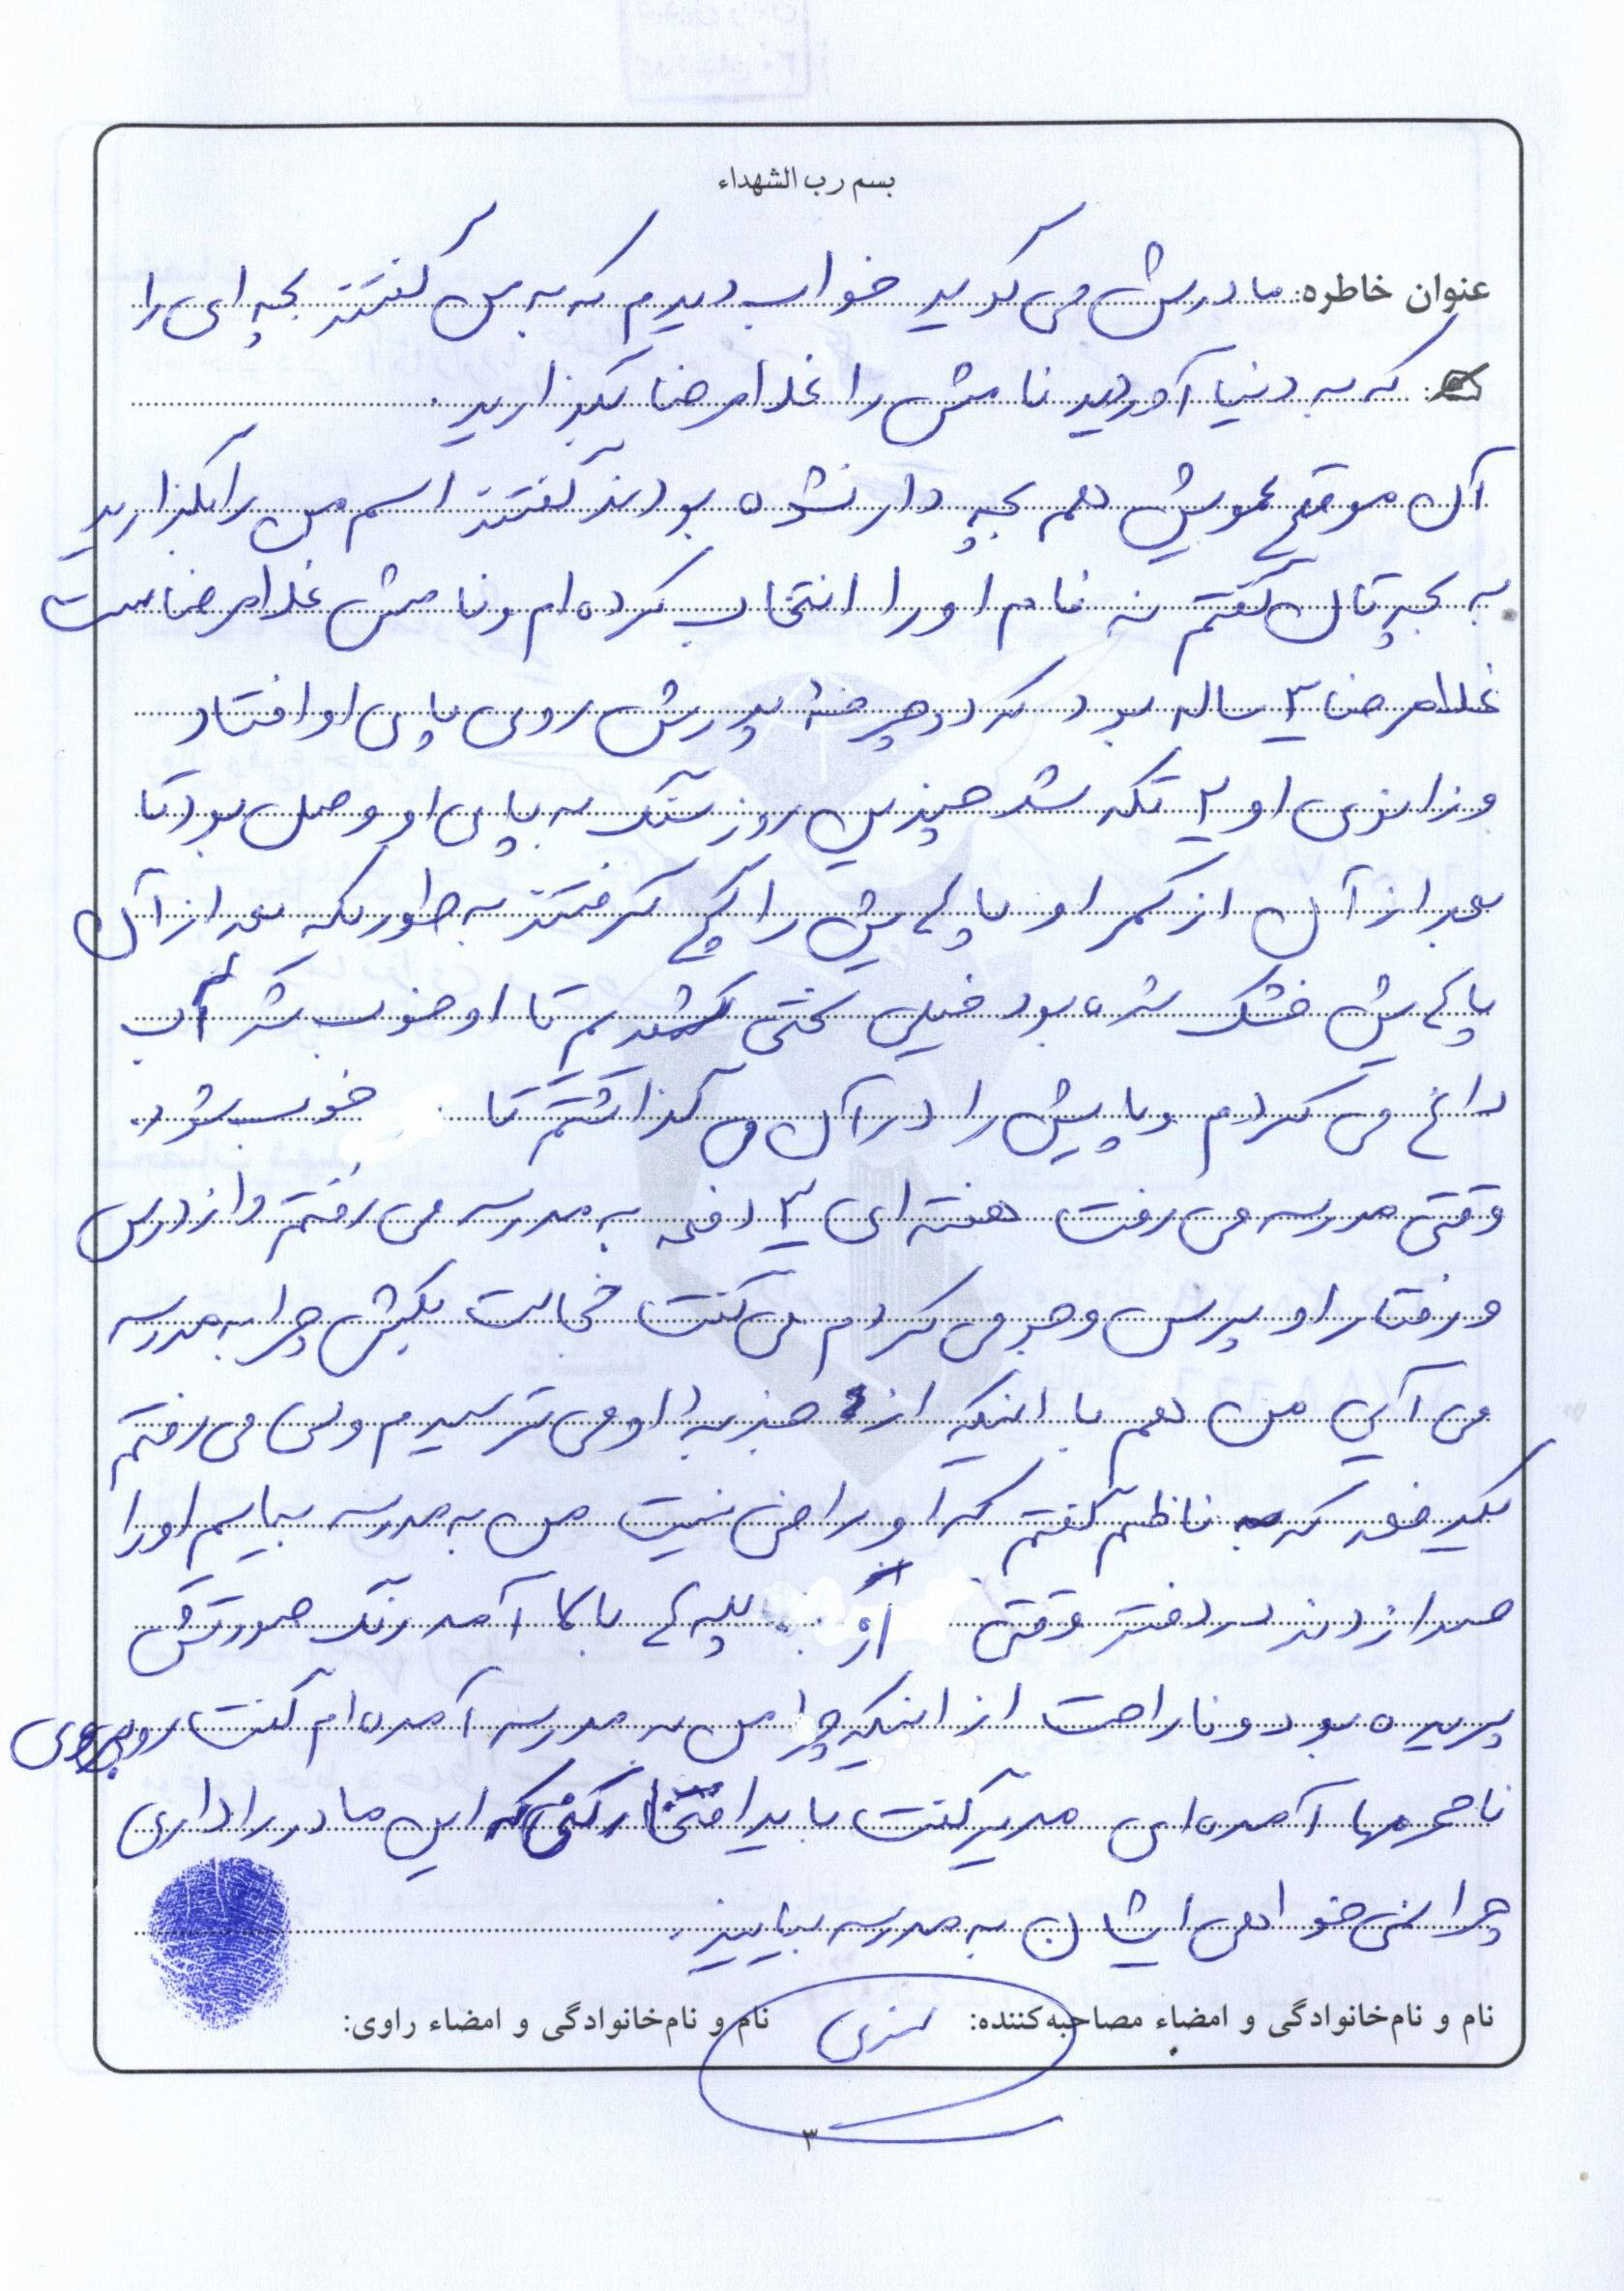 بسم رب الشهداء
عنوان خاطره: مادرش می گوید خواب دیدم که به من گفتند بچه ای را
که به دنیا آوردید نامش را غلامرضا بگذارید.
آن موقع عمویش هم بچه دار نشده بودند گفتند اسم من را بگذارید
به بچه تان گفتم نه نام او را انتخاب کرده ام و نامش غلامرضاست
غلامرضا ۳ ساله بود که دوچرخه پدرش روی پای او افتاد
و زانوی او ۲ تکه شد چندین روز سنگ به پای او وصل بود تا
بعد از آن از کمر او پاهایش را گچ گرفتند به طوریکه بعد از آن
پاهایش خشک شده بود خیلی سختی کشیدیم تا او خوب شد آب
داغ می کردم و پایش را در آن می گذاشتم تا خوب شود.
وقتی مدرسه می رفت هفته ای ۳ دفعه به مدرسه می رفتم و از درس
و رفتار او پرس و جو می کردم می گفت خجالت بکش چرا به مدرسه
می آئی من هم با اینکه از جذبه او می ترسیدم ولی می رفتم
یکدفعه که به ناظم گفتم که او راضی نیست من به مدرسه بیایم او را
صدا زدند در دفتر وقتی از پله های بالا آمد رنگ صورتش
پریده بود و ناراحت از اینکه چرا من به مدرسه آمده ام گفت روبروی
نامحرمها آمده ای مدیر گفت باید افتخار کنی که این مادر را داری
چرا نمی خواهی ایشان به مدرسه بیایند.
نام و نام‌خانوادگی و امضاء مصاحبه‌کننده: نام و نام‌خانوادگی و امضاء راوی:
۳